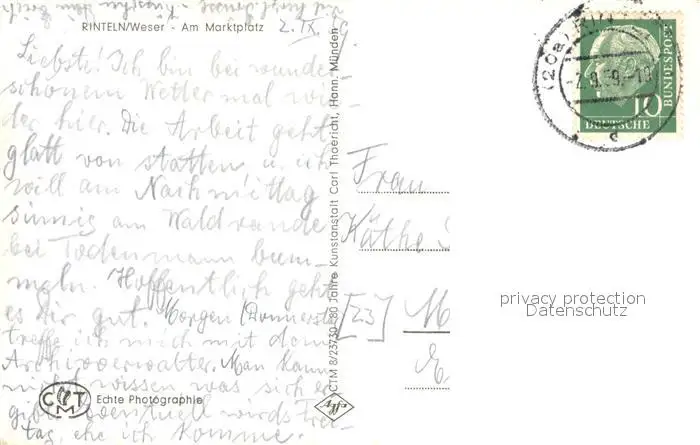 RINTELN/Weser - Am Marktplatz
2. IX.
Liebste! Ich bin bei wunder-
schönem Wetter mal wie-
der hier. Die Arbeit geht
glatt von statten, u. ich
will am Nachmittag
sinnig am Waldrande
bei Todenmann bum-
meln. Hoffentlich geht
es dir gut. Morgen (Donnerst.)
treffe ich mich mit dem
Archivverwalter. Man kann
nicht wissen was sich er-
gibt, eventuell wirds Frei-
tag, ehe ich komme.
CTM
Echte Photographie
CTM 8/23730 - 80 Jahre Kunstanstalt Carl Thoericht, Hann. Münden
Frau
Käthe
[23] M
(20a) RIN
-2.9.59-18
d
10
DEUTSCHE BUNDESPOST
privacy protection
Datenschutz